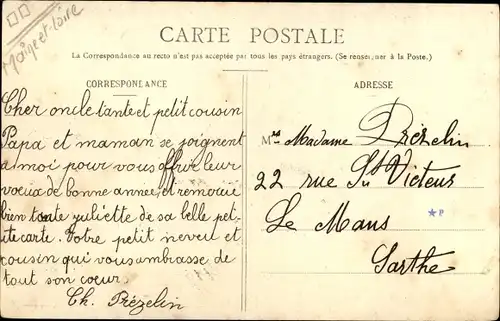 Maine et Loire
CARTE POSTALE
La Correspondance au recto n'est pas acceptée par tous les pays étrangers. (Se renseigner à la Poste.)
CORRESPONDANCE
Cher oncle tante et petit cousin
Papa et maman se joignent
a moi pour vous offrir leur
voeux de bonne année, et remercie
bien tante yuliette de sa belle pet-
ite carte. Votre petit neveu et
cousin qui vous ambrasse de
tout son coeur.
Ch. Prézelin
ADRESSE
M Madame Prézelin
22 rue St Victeur
Le Mans
Sarthe